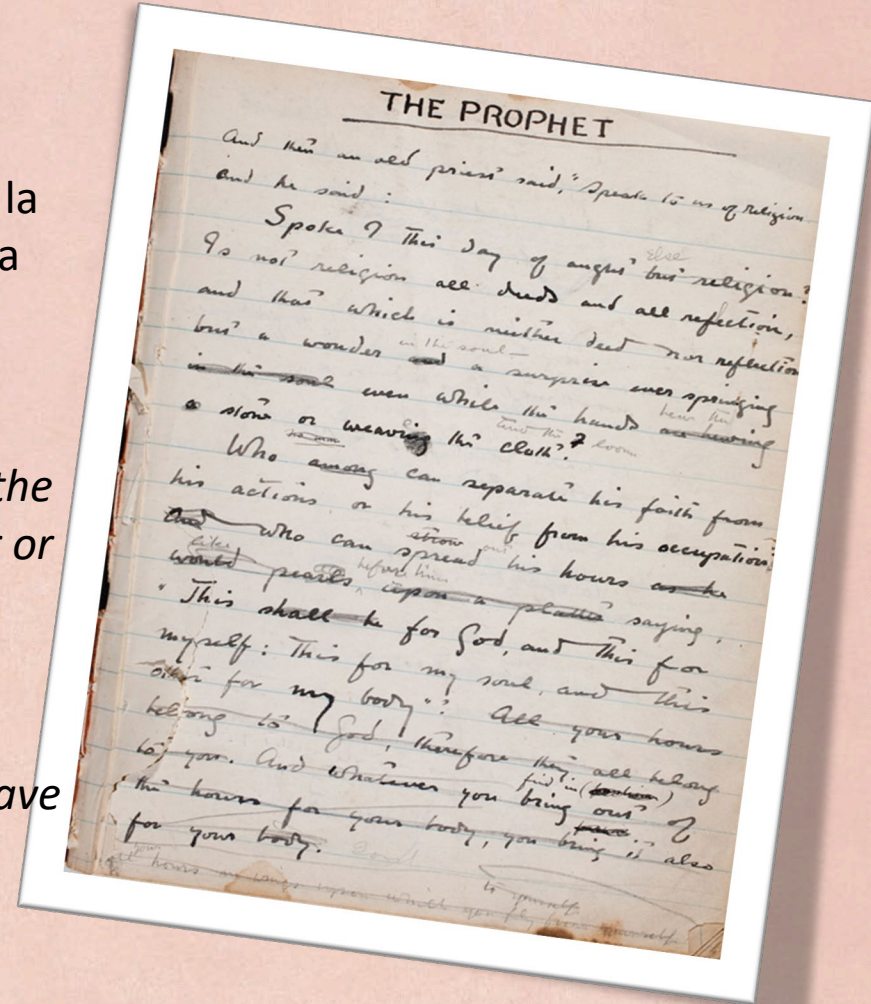 la
a
the
or
ave
THE PROPHET
And then an old priest said, "Speak to us of religion
and he said :
Spoke I this day of aught else but religion?
Is not religion all deeds and all reflection,
and that which is neither deed nor reflection
but a wonder and a surprise ever springing
in the soul –
in the soul even while the hands are hewing
hew the
a stone or weaving the cloth?
tend the loom
Who among can separate his faith from
his actions, or his belief from his occupations?
And who can spread his hours as he
strow out
like
would pearls upon a platter saying,
before him
"This shall be for God, and this for
myself: This for my soul, and this
other for my body"? All your hours
belong to God, therefore they all belong
to you. And whatever you bring out of
find in
the hours for your body, you bring it also
for your body.
hours are wings upon which you fly from
to yourself